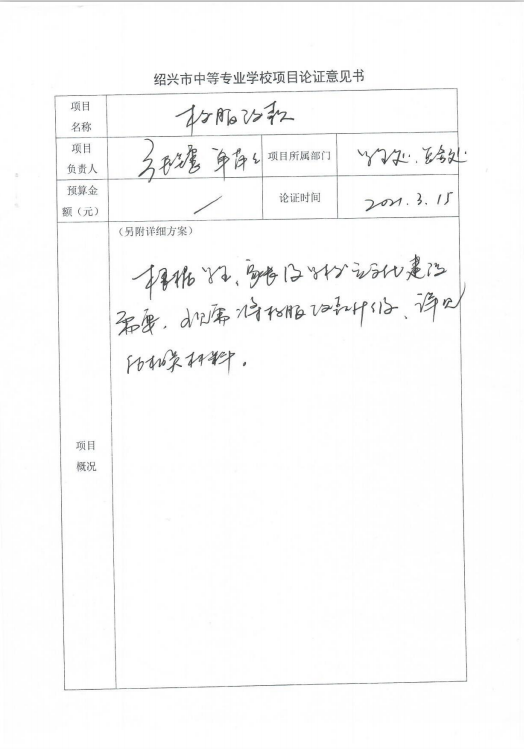 绍兴市中等专业学校项目论证意见书
项目
名称
校服改款
项目
负责人
项目所属部门
学生处、总务处
预算金
额（元）
论证时间
2021.3.15
（另附详细方案）
根据学生、家长及学校文化建设
需要，现需将校服改款升级、详见
附相关材料。
项目
概况